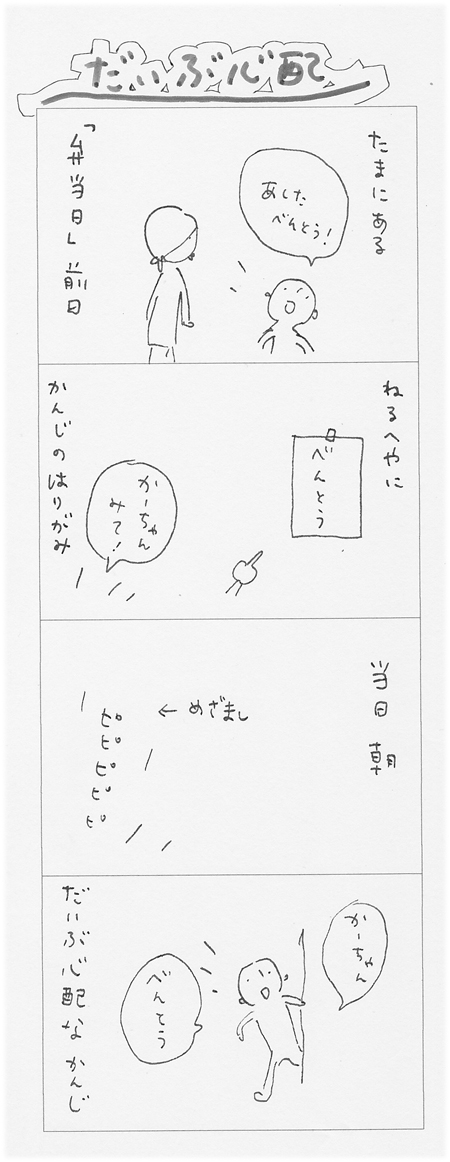 だいぶ心配
たまにある
あした
べんとう!
「弁当日」前日
ねるへやに
べんとう
かーちゃん
みて!
かんじのはりがみ
当日 朝
← めざまし
ピピピピピ
かーちゃん
べんとう
だいぶ心配な かんじ